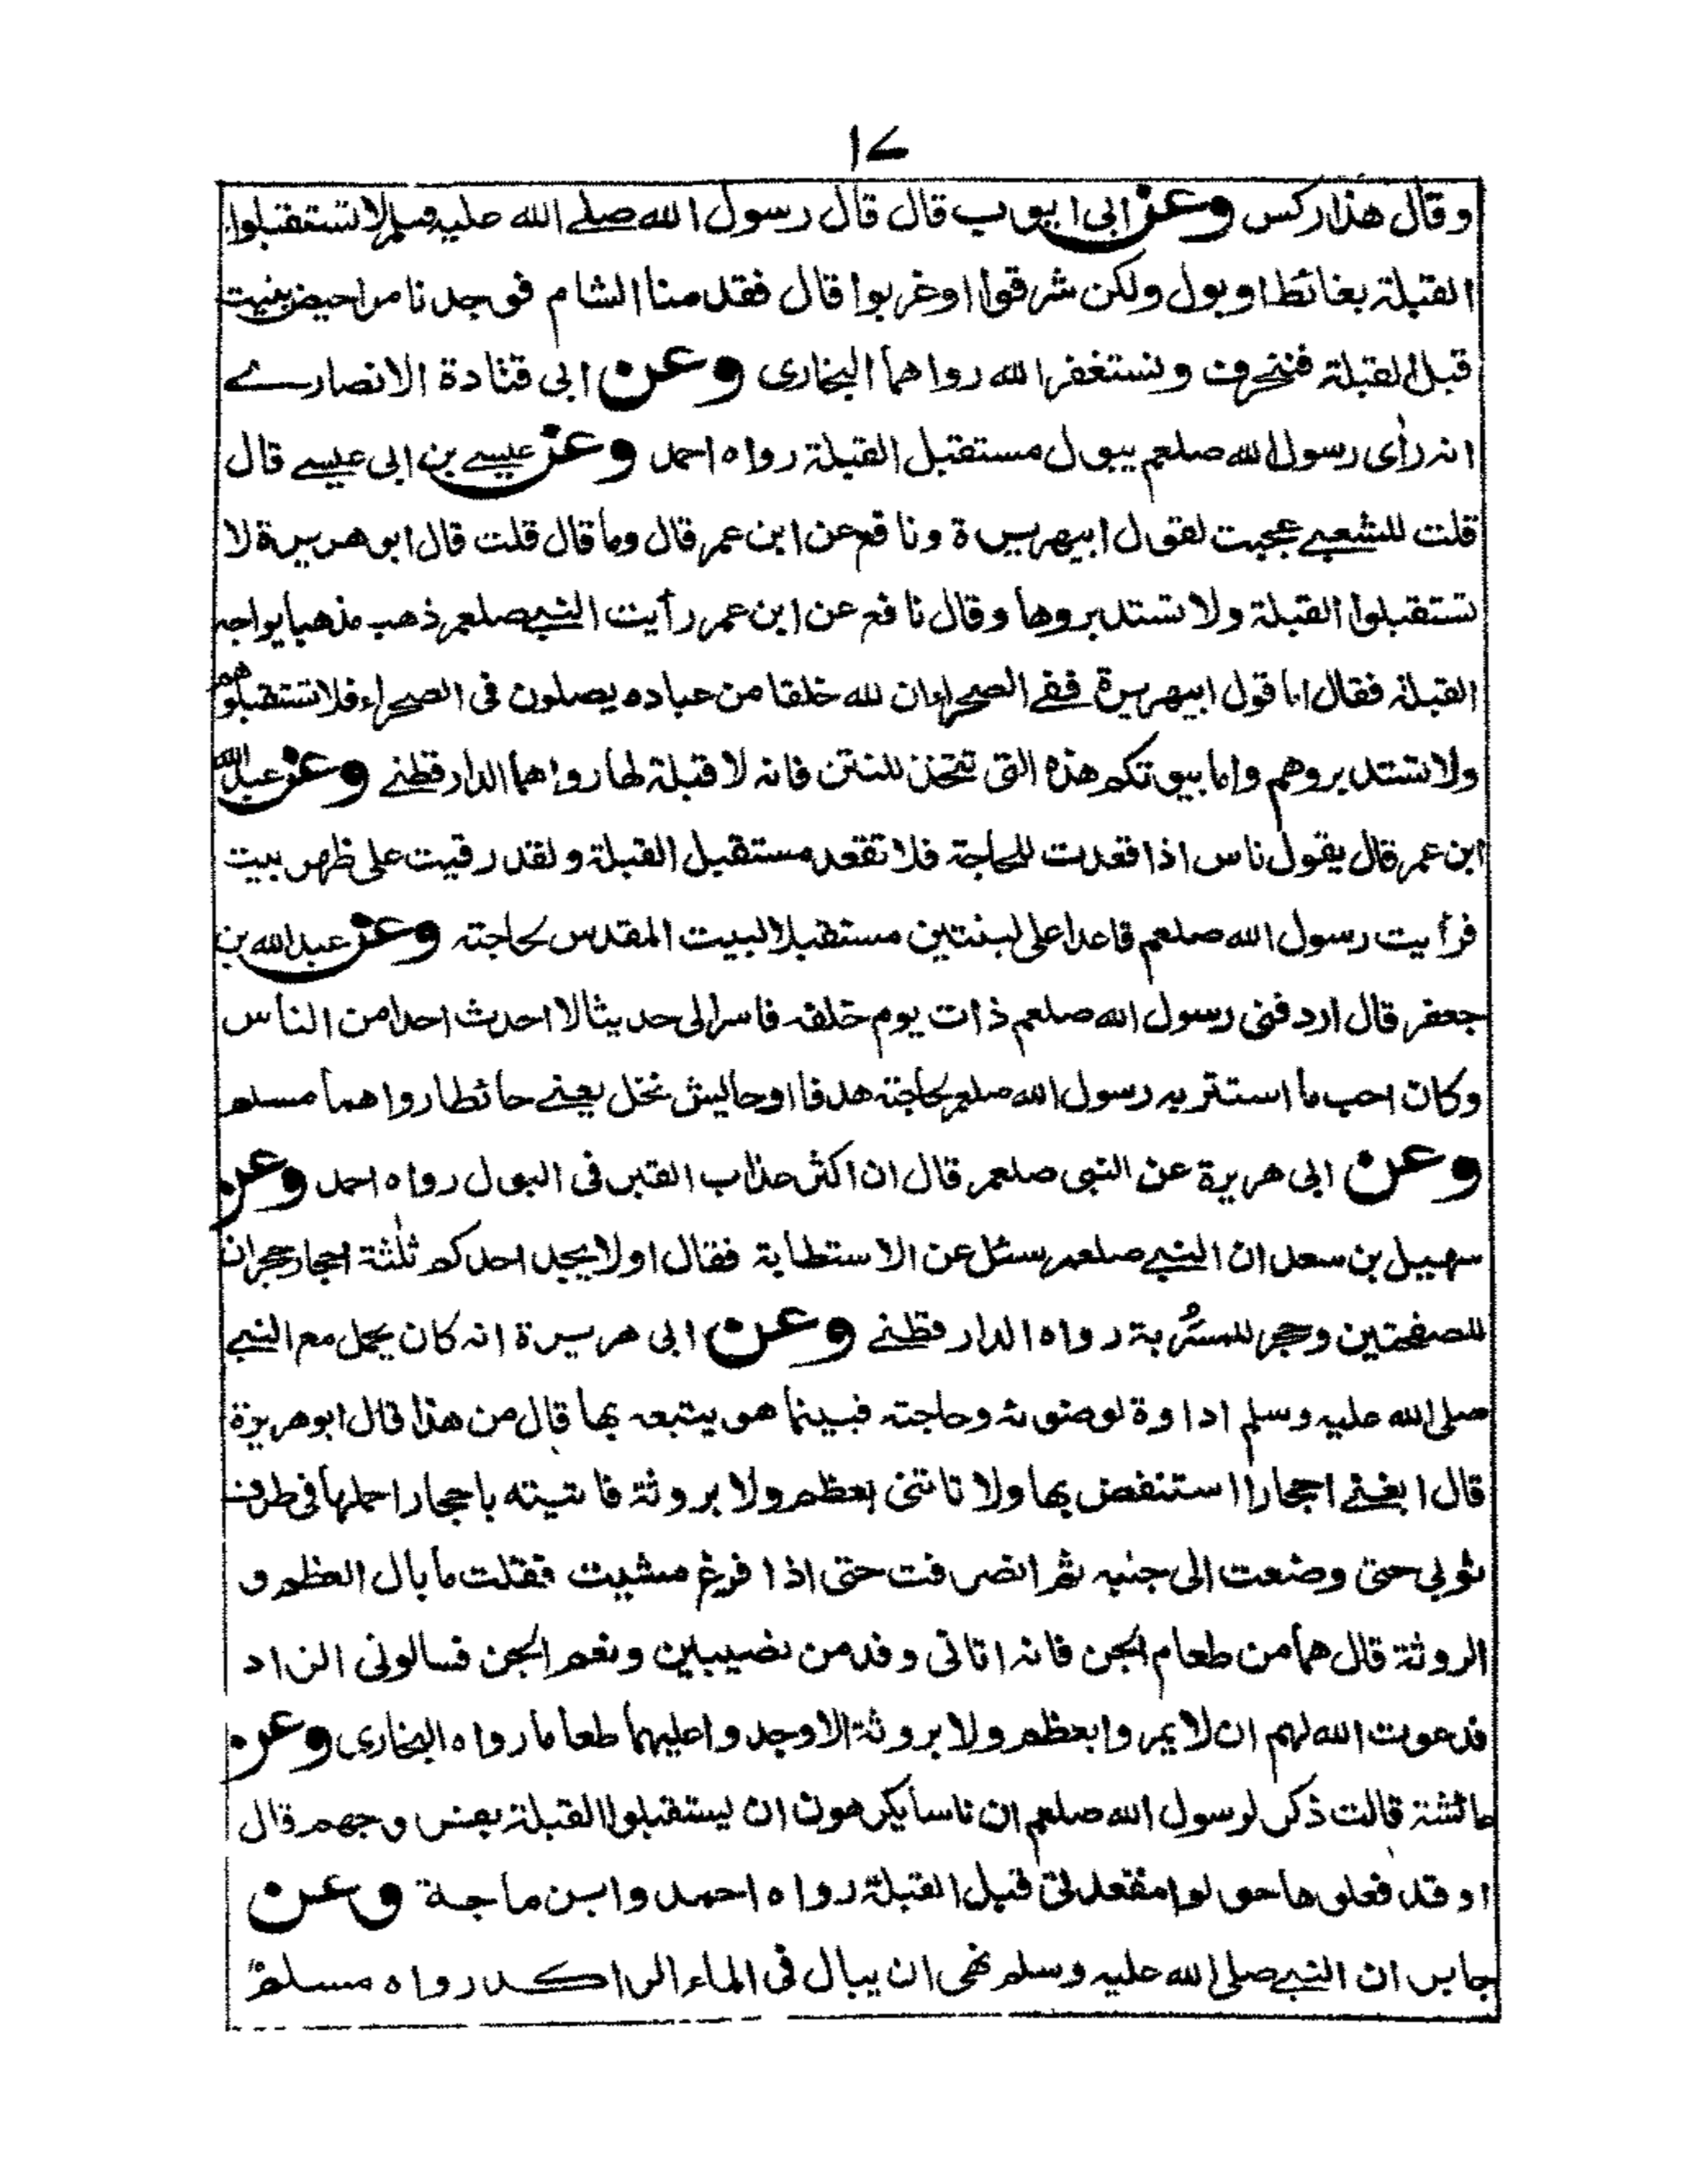 ۱۷
وقال هذا ركس وعن ابى ايوب قال قال رسول الله صلے الله عليه وسلم لا تستقبلوا
القبلة بغائط او بول ولكن شرقوا او غربوا قال فقدمنا الشام فوجدنا مراحيض بنيت
قبل القبلة فننحرف ونستغفر الله رواهما البخارى وعن ابى قتادة الانصارے
انه رأى رسول الله صلعم يبول مستقبل القبلة رواه احمد وعن عيسے بن ابى عيسے قال
قلت للشعبے عجبت لقول ابيهريرة ونافع عن ابن عمر قال وما قال قلت قال ابو هريرة لا
تستقبلوا القبلة ولا تستدبروها وقال نافع عن ابن عمر رأيت النبے صلعم ذهب مذهبا يواجه
القبلة فقال اما قول ابيهريرة ففے الصحراء ان لله خلقا من عباده يصلون فى الصحراء فلا تستقبلوهم
ولا تستدبروهم واما بيوتكم هذه التى تتخذ للنتن فانه لا قبلة لها رواهما الدارقطنے وعن عبد الله
ابن عمر قال يقول ناس اذا قعدت للحاجة فلا تقعد مستقبل القبلة ولقد رقيت على ظهر بيت
فرأيت رسول الله صلعم قاعدا على لبنتين مستقبلا لبيت المقدس لحاجته وعن عبد الله بن
جعفر قال اردفنى رسول الله صلعم ذات يوم خلفه فاسر الى حديثا لا احدث احدا من الناس
وكان احب ما استتر به رسول الله صلعم لحاجته هدفا او حاليش نخل يعنے حائطا رواهما مسلم
وعن ابى هريرة عن النبى صلعم قال ان اكثر عذاب القبر فى البول رواه احمد وعن
سهيل بن سعد ان النبے صلعم سئل عن الاستطابة فقال اولا يجد احدكم ثلثة احجار حجران
للصفحتين وحجر للمسربة رواه الدارقطنے وعن ابى هريرة انه كان يحمل مع النبے
صلى الله عليه وسلم اداوة لوضوئه وحاجته فبينما هو يتبعه بها قال من هذا قال ابو هريرة
قال ابغنے احجارا استنفض بها ولا تاتنى بعظم ولا بروثة فاتيته باحجار احملها فى طرف
ثوبى حتى وضعت الى جنبه ثم انصرفت حتى اذا فرغ مشيت فقلت ما بال العظم و
الروثة قال هما من طعام الجن فانه اتانى وفد من نصيبين ونعم الجن فسالونى الزاد
فدعوت الله لهم ان لا يمروا بعظم ولا بروثة الا وجدوا عليهما طعاما رواه البخارى وعن
عائشة قالت ذكر لرسول الله صلعم ان ناسا يكرهون ان يستقبلوا القبلة بفروجهم قال
او قد فعلوها حولوا مقعدتى قبل القبلة رواه احمد وابن ماجة وعن
جابر ان النبے صلى الله عليه وسلم نهى ان يبال فى الماء الراكد رواه مسلم